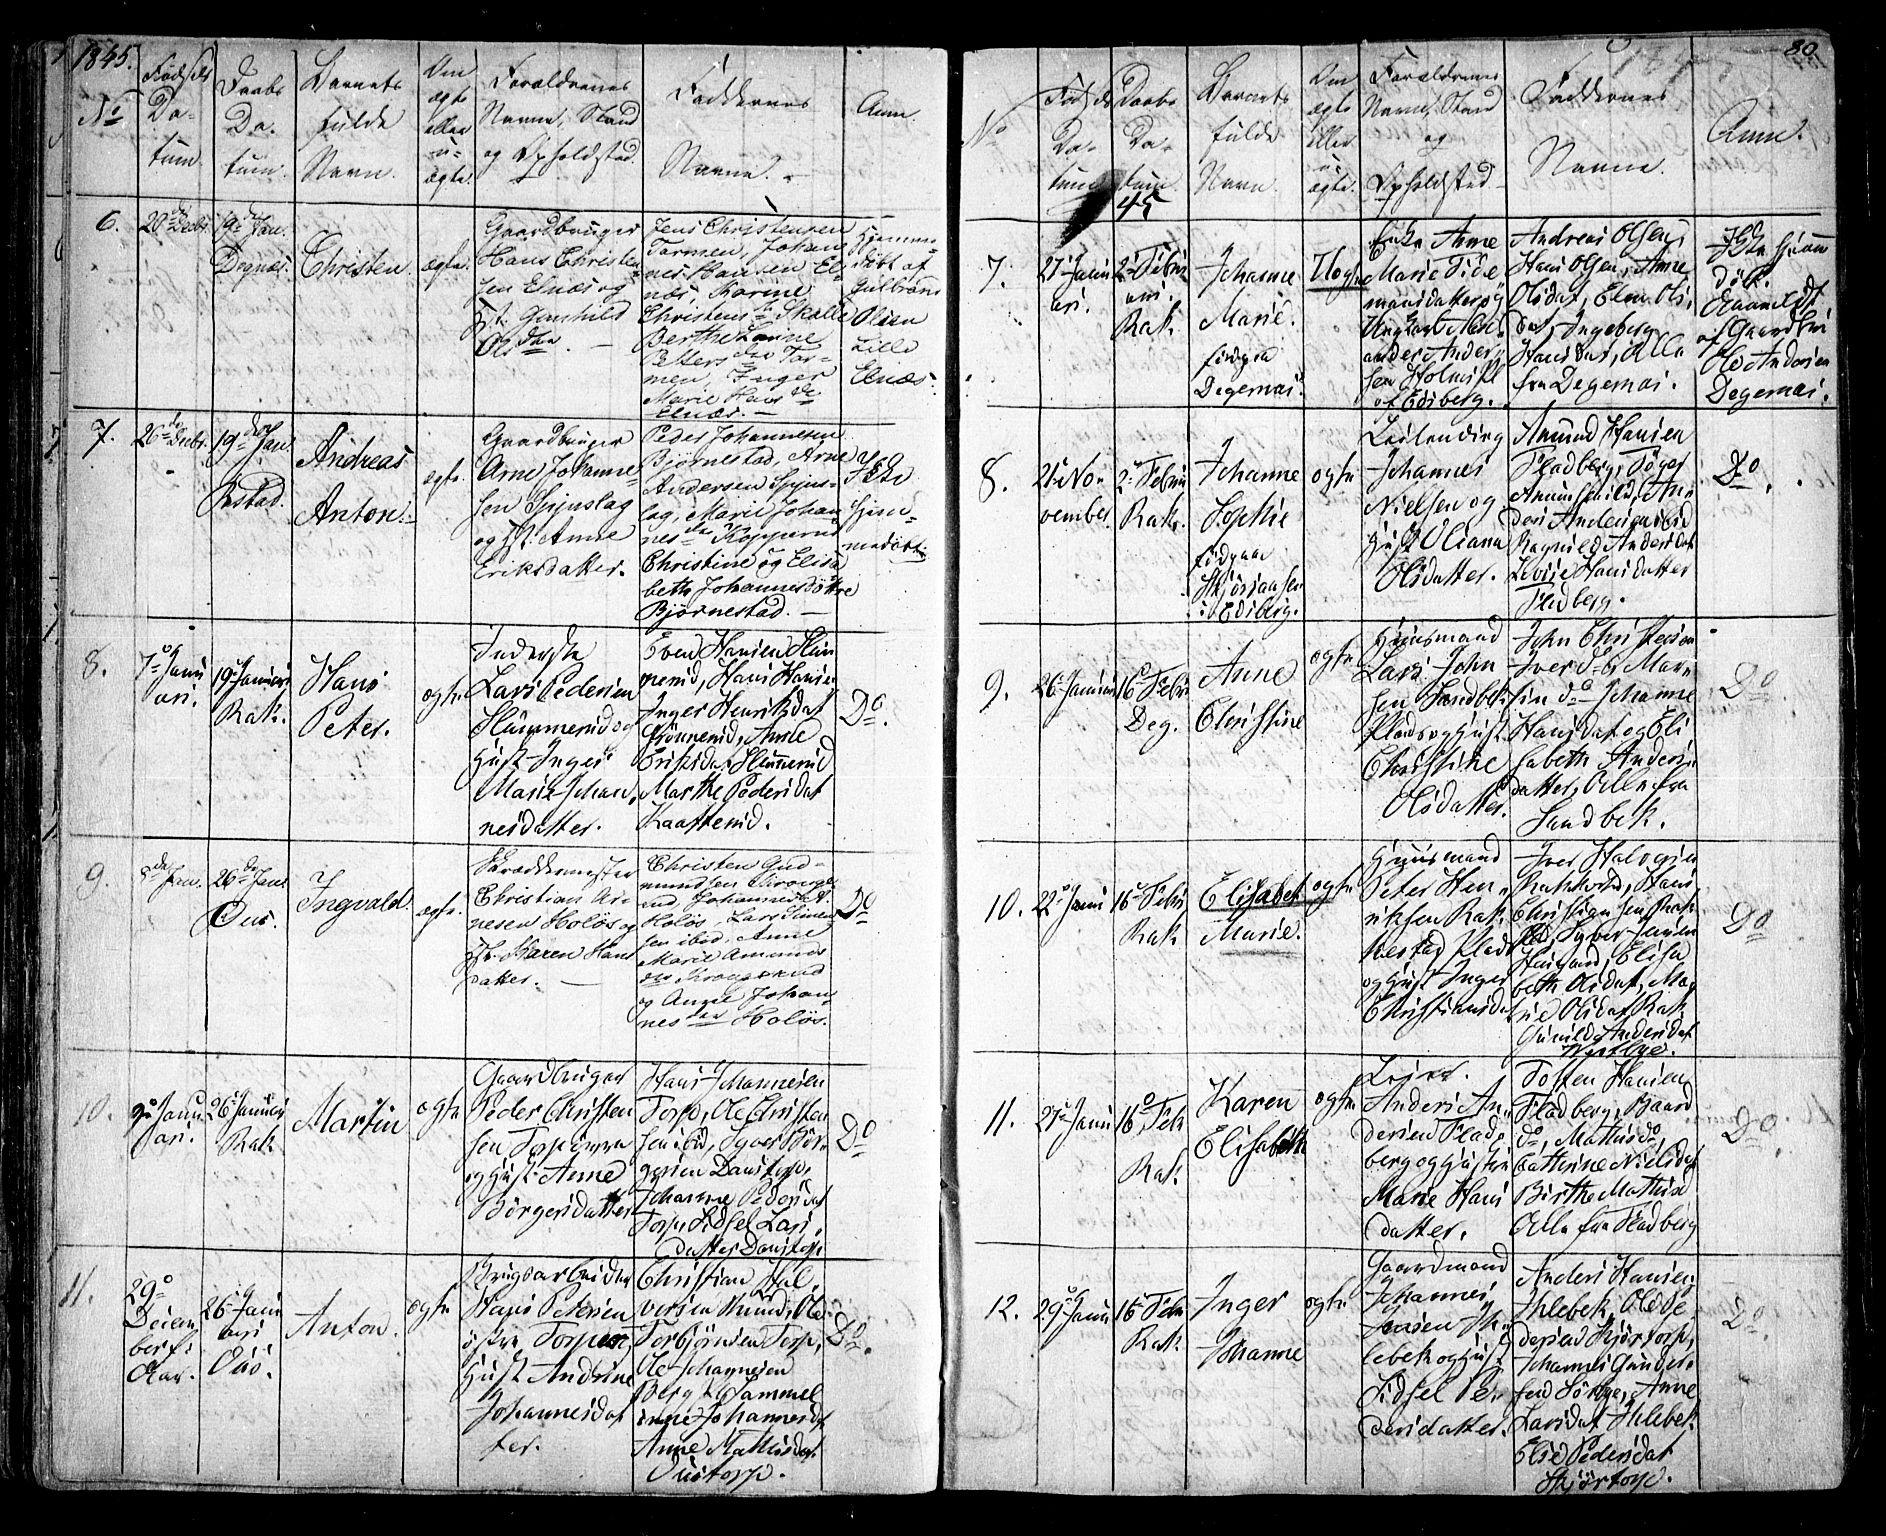 1845.
No
Fødsels Da- tum.
Daabs Da- tum.
Barnets fulde Navn.
Om ægte eller u- ægte.
Forældrenes Navne, Stand og Opholdsted.
Faddernes Navne.
Anm.
6.
20de Decbr.
19de Jan.
Degnæs.
Christen.
ægte.
Gaardbruger
Hans Christen-
sen Elnæs og
Gunhild
Olsdtr.
Jens Christensen
Tormen, Johan-
nes Hansen El-
næs, Karine
Christensdr Skolle
Berthe Lovine
Pettersdtr Tor-
men, Inger
Marie Hansdtr
Elnæs.
Hjemme-
døbt af
Gulbran
Olsen
Lille
Elnæs.
7.
26de Decbr.
19de Jan.
Andreas
Anton.
ægte.
Gaardbruger
Arne Johanne-
sen Spjuslag
og H. Anne
Eriksdatter.
Peder Johannesen
Bjørnestad, Arne
Andersen Spjus-
lag, Marie Johan-
nesdtr Kopperud
Christine og Elisa
beth Johannesdøttre
Bjørnestad.
Ikke
hjem-
medøbt
8.
7de Janu
ari.
19 Januari
Rak.
Hans
Peter.
ægte.
Inderste
Lars Pedersen
Slunnerud og
Hust Inger
Marie Johan-
nesdatter.
Even Hansen Slun
nerud, Hans Hans.
Inger Henriksdat
Grønnerud, Anne
Eriksdat Slunnerud
Marthe Pedersdat
Kaatterud.
Do.
9.
5de Jan.
26de Jan.
Ous.
Ingvald
ægte.
Skræddermester
Christian Ar-
nesen Holøs og
H. Karen Hans
datter.
Christen Gud-
mundsen Krogge-
rud, Johannes A.
Holøs, Lars Simen
sen ibid. Anne
Marie Amunds
dtr Kroggerud
og Anne Johan-
nesdtr Holøs.
Do
10.
9de Janu
ari.
26 Januari
Rak.
Martin
ægte
Gaardbruger
Peder Christen
sen Torp
og Hust Anne
Børgersdatter
Hans Johannesen
Torp, Ole Christen
sen ibid, Syver Bør-
gersen Danstorp,
Johanne Pedersdat
Torp, Sidsel Lars-
datter Danstorp.
Do
11.
29de
Decem
ber f:
Aar.
26 Janu
ari
Ous.
Anton.
ægte
Brugsarbeider
Hans Petersen
østre Torper
Hust Andrine
Johannesdat
ter.
Christian Hal-
versen Mund, Ole
Torbjørnsen Torp,
Ole Johannesen
Berg, Gammel
inne Johannesdat
Anne Mathisdat
Oustorp.
Do.
80
No
Fødsels Da- tum
Daabs Da- tum.
45
Barnets fulde Navn.
Om ægte eller u- ægte.
Forældrenes Navne, Stand og Opholdsted
Faddernes Navne.
Anm.
7.
27 Janu
ari.
2 Febru
ari.
Rak.
Johanne
Marie.
fød paa
Degernæs.
Uægte
Enke Anne
Marie Tide
mansdatter og
Ungkarl Alex-
ander Ander-
sen Holms Pl
af Edsberg.
Andreas Olsen,
Hans Olsen, Anne
Olsdat, Elen Ols-
dat, Ingeborg
Hansdat, Alle
fra Degernæs.
Ikke hjem
døbt.
Anmeldt
af Gaardbr
Ole Andersen
Degernæs.
8.
21 No-
vember.
2 Febru
Rak.
Johanne
Sophie
fød paa
Skjøraasen
i Edsberg.
ægte
Leilending
Johannes
Nielsen og
Hust Oliana
Olsdatter.
Amund Hansen
Fladberg, Tøger
Amundsen ibid, An-
ders Andersen ibid
Ragnild Andersdat
Lovise Hansdatter
Fladberg.
Do.
9.
26 Januar
16 Febru
Deg.
Anne
Christine
ægte
Huusmand
Lars John
sen Sandbek
Plads og Hust
Christine
Olsdatter.
John Christensen
Iver do, Mar-
tin do Johanne
Hansdat og Eli
sabeth Anders-
datter, Alle fra
Sandbek.
Do
10.
22 Janu
16 Febru
Rak
Elisabet
Marie.
ægte
Huusmand
Peter Hen-
riksen Rak-
kestad Plads
og Hust Inger
Christiansdat
Iver Halvorsen
Rakkestad, Hans
Christiansen Rak
Pld, Syver Jensen
Haugand, Elisa
beth Olsdat, Ma-
rie Olsdat Rak.
Gunild Andersdat
Westbye.
Do
11.
27 Janu
16 Feb
Rak.
Karen
Elisabeth
ægte
Leier.
Anders An-
dersen Flad-
berg og Hustru
Marie Hans
datter.
Tosten Hansen
Fladberg, Baard
do, Mathis do,
Cathrine Nielsdat
Birthe Mathisd
Alle fra Fladberg
Do
12.
29 Janu
16 Feb
Rak.
Inger
Johanne
ægte
Gaardmand
Johannes
Jensen Ih-
lebek og Hust
Sidsel Pe-
dersdatter.
Anders Hansen
Ihlebek, Ole Pe
dersen Skjørtorp,
Johannes Gunder-
sen Sørbye, Anne
Larsdat Ihlebek
Elise Pedersdat
Skjørtorp.
Do.